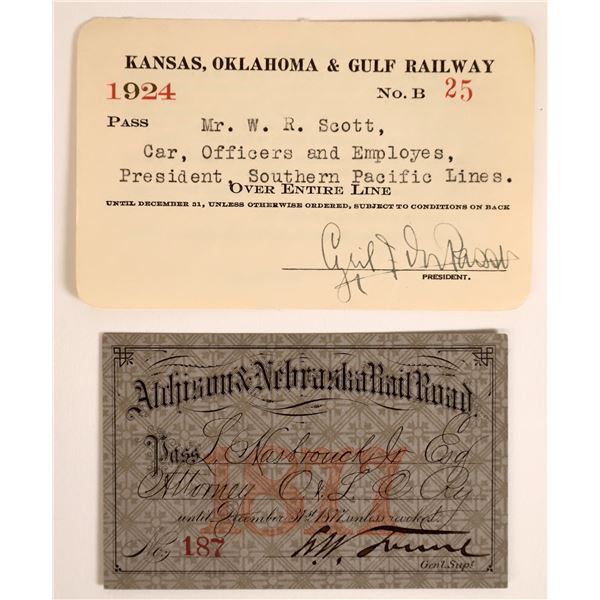 KANSAS, OKLAHOMA & GULF RAILWAY
1924 No. B 25
PASS Mr. W. R. Scott,
Car, Officers and Employes,
President, Southern Pacific Lines.
OVER ENTIRE LINE
UNTIL DECEMBER 31, UNLESS OTHERWISE ORDERED, SUBJECT TO CONDITIONS ON BACK
PRESIDENT.
Atchison & Nebraska Rail Road.
Pass L. Hasbrouck Jr Esq
Attorney C & Ry
until December 31st 1877 unless revoked.
1877
No. 187
Gen'l Supt